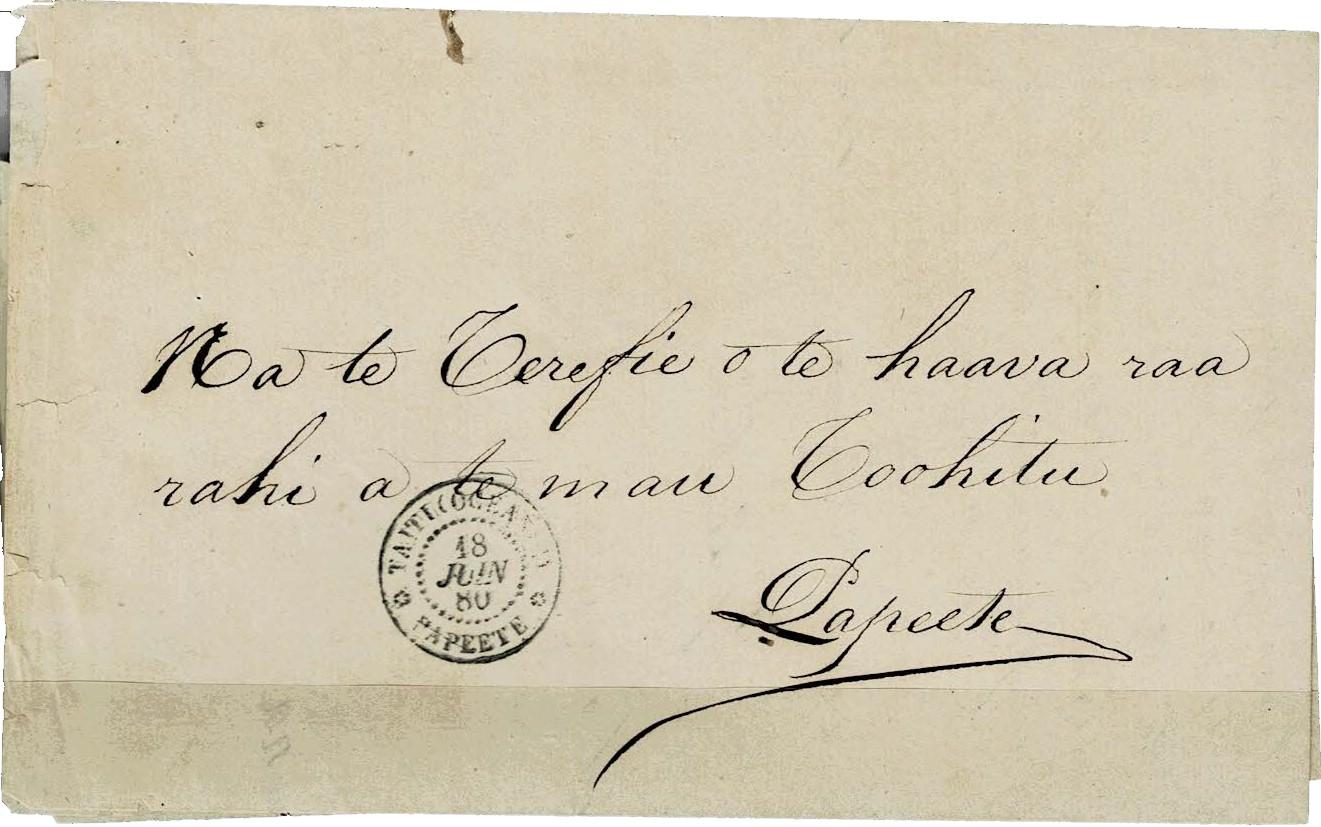 Na te Terefie o te haava raa
rahi a te mau Toohitu
Papeete
TAITI (OCEANIE)
18
JUIN
80
PAPEETE